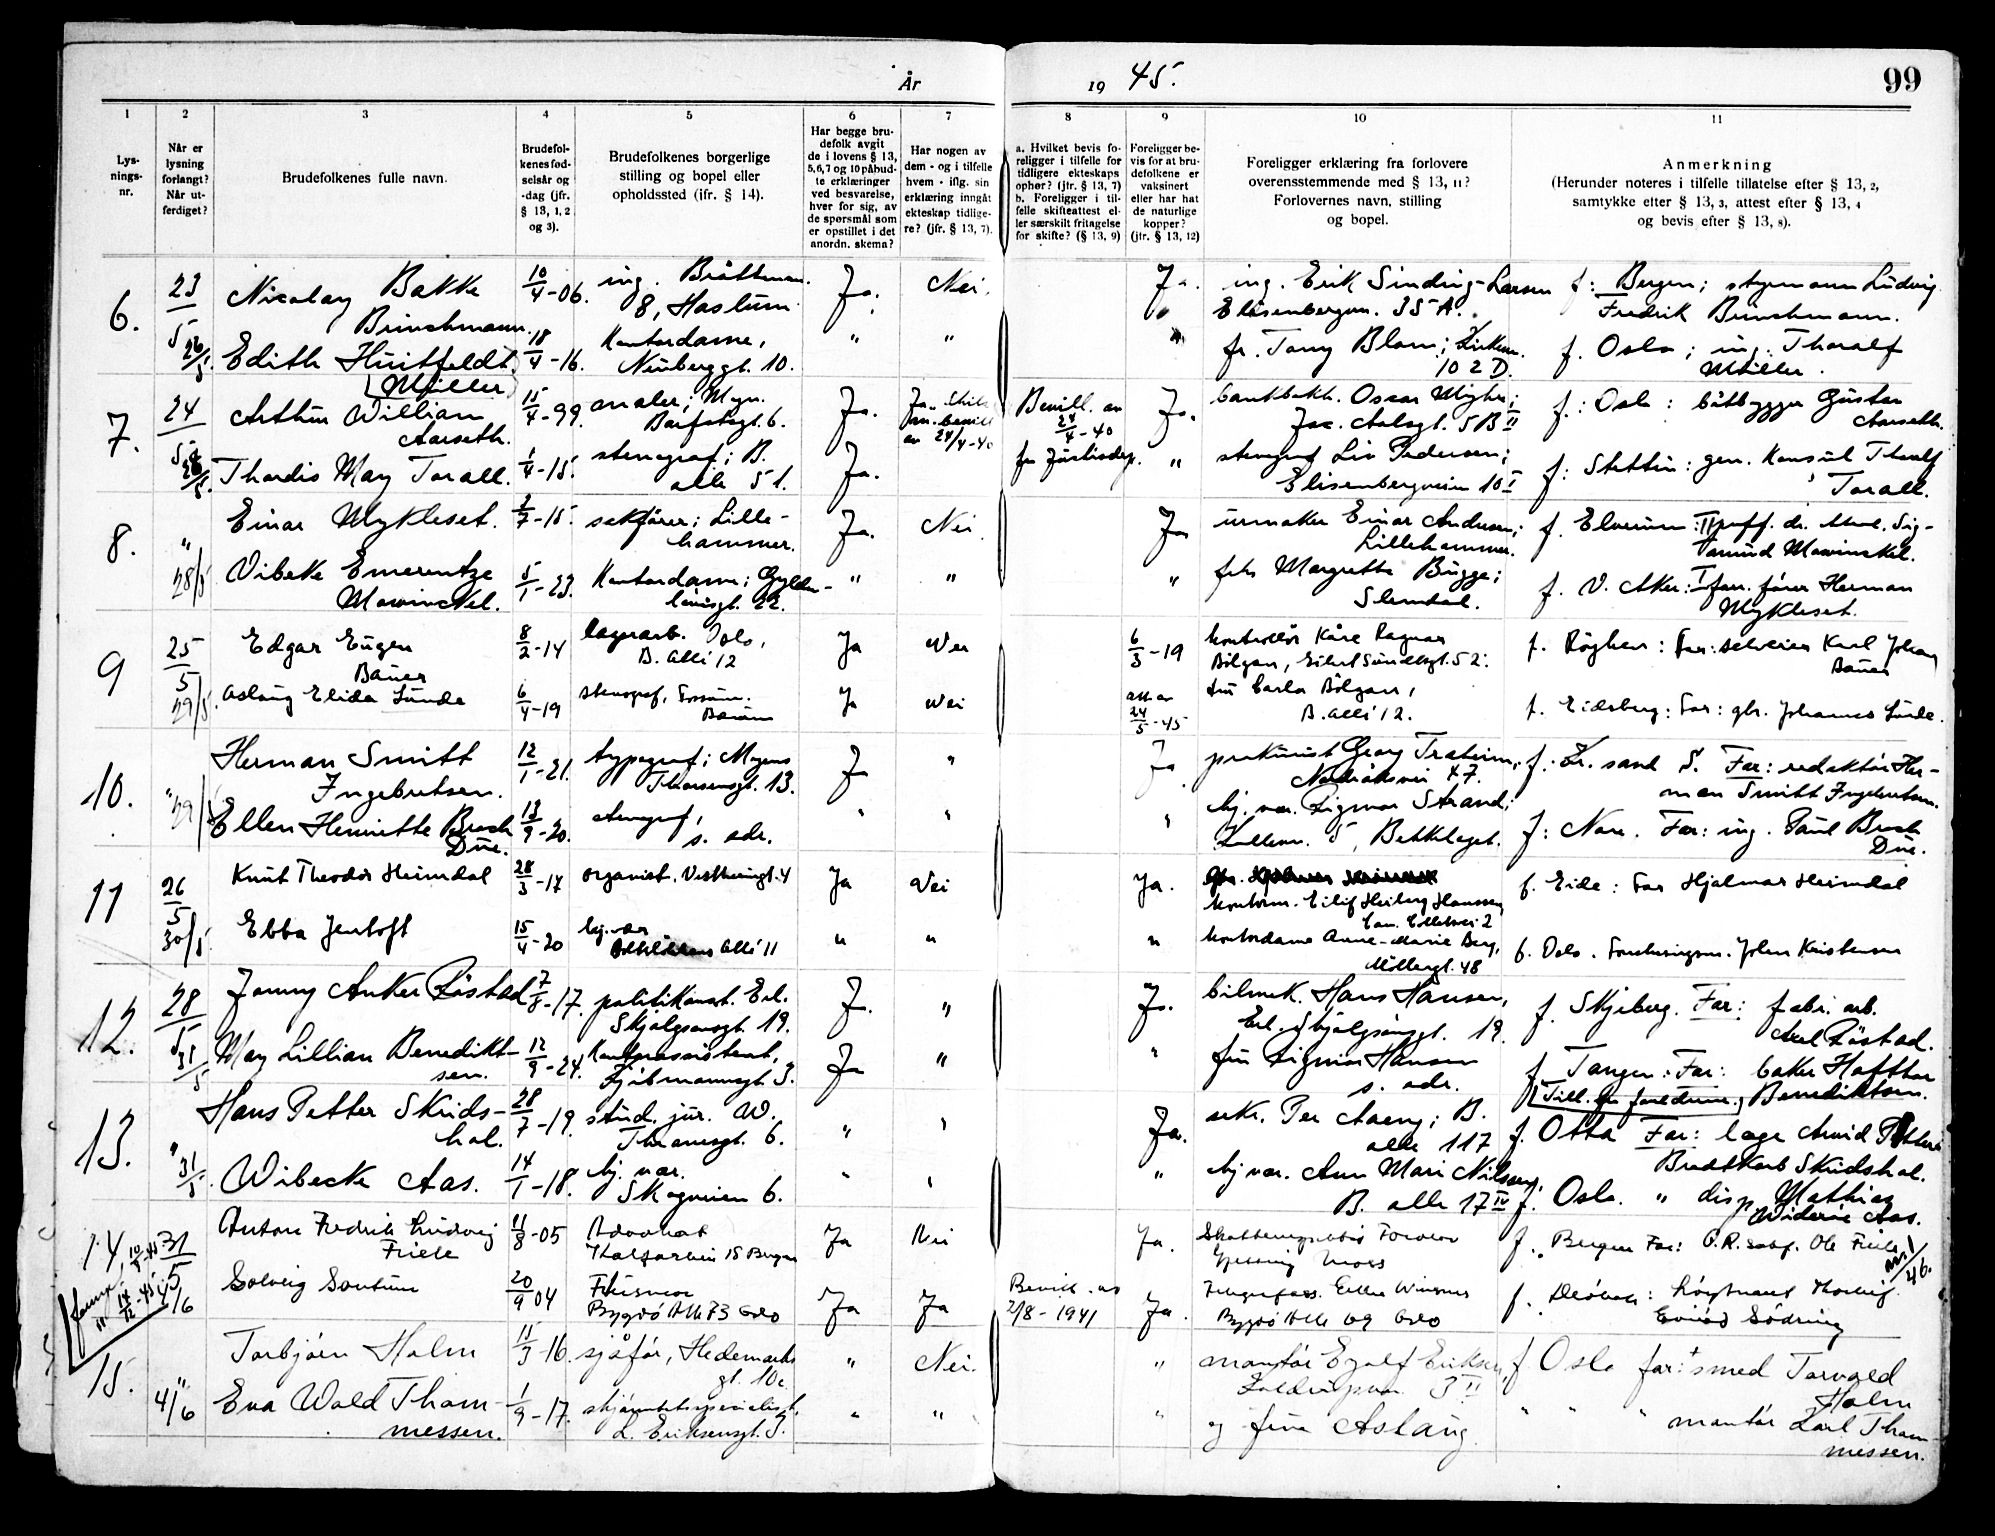 År 19 45. 99
1 2 3 4 5 6 7 8 9 10 11
Lys-
nings-
nr.
Når er
lysning
forlangt?
Når ut-
ferdiget?
Brudefolkenes fulle navn.
Brudefol-
kenes fød-
selsår og
-dag (jfr.
§ 13, 1, 2
og 3).
Brudefolkenes borgerlige
stilling og bopel eller
opholdssted (jfr. § 14).
Har begge bru-
defolk avgit
de i lovens § 13,
5,6,7 og 10 påbud-
te erklæringer
ved besvarelse,
hver for sig, av
de spørsmål som
er opstillet i det
anordn. skema?
Har nogen av
dem - og i tilfelle
hvem - iflg. sin
erklæring inngåt
ekteskap tidlige-
re? (jfr. § 13, 7).
a. Hvilket bevis fo-
religger i tilfelle for
tidligere ekteskaps
ophør? (jfr. § 13, 7)
b. Foreligger i til-
felle skifteattest el-
ler særskilt fritagelse
for skifte? (§ 13, 9)
Foreligger be-
vis for at bru-
defolkene er
vaksinert
eller har hat
de naturlige
kopper?
(jfr. § 13, 12)
Foreligger erklæring fra forlovere
overensstemmende med § 13, 11?
Forlovernes navn, stilling
og bopel.
Anmerkning
(Herunder noteres i tilfelle tillatelse efter § 13, 2,
samtykke efter § 13, 3, attest efter § 13, 4
og bevis efter § 13, 8).
6. 23/5 26/5
Nicolay Bakke
Brinchmann.
10/4-06.
ing.
8, Haslum.
Ja. Nei. Ja.
ing. Erik Sinding-Larsen
Elisenbergvn. 35 A.
f: Bergen; styrmann Ludvig
Fredrik Brinchmann.
Edith Huitfeldt
(Møller)
18/4-16.
Kontordame,
Neuberggt. 10.
" " "
fr. Tony Blom; Kirkevn.
102 D.
f. Oslo; ing. Thoralf
Møller.
7. 24/5 28/5.
Arthur William
Aarseth.
15/4-99.
maler; Magn.
Barfotsgt. 6.
Ja.
av 24/4-40
Bevill. av
24/4-40
Ja.
Oscar
Jac. Aalsgt. 5 B II
f.: Oslo: båtbygger Gustav
Aarseth.
Thordis May Torall.
1/4-15.
stenograf; B.
alle 51.
Ja. "
stenograf Liv Pedersen;
Elisenbergveien 10 I
f: Stettin: gen. konsul Thoralf
Torall.
8. " 28/5
Einar Mykleset.
2/7-15.
sakfører; Lille-
hammer.
Ja. Nei. Ja
urmaker Einar Andersen;
Lillehammer.
f. Elverum:
Vibeke Emerentze
Mowinckel.
5/1-23.
Kontordame; Gylden-
løvesgt. 22.
" " "
frk. Margrethe Bugge;
Slemdal.
f. V. Aker: Herman
Mykleset.
9 25/5 29/5
Edgar Eugen
Bauer
8/2-14
lagerarb. Oslo,
B. Allé 12
Ja Nei 6/3-19
kontrollør Kåre Ragnar
Bølgen, Eilert Sundtsgt. 52.
f. Røyken: Far: selveier Karl Johan
Bauer
Aslaug Elida Lunde
6/4-19
stenograf,
Bærum
Ja Nei
att. av
24/5-45
fru Carla Bølgen,
B. Allé 12.
f. Eidsberg: Far: gbr. Johannes Lunde.
10. " 29/5
Herman Smitt
Ingebretsen.
12/1-21.
typograf; Mogens
Thorsensgt. 13.
Ja " Ja
prokurist Georg
47.
f. Kr.sand S. Far: redaktør Her-
man Smitt Ingebretsen.
Ellen Henriette Broch
Due.
13/9-20.
stenograf,
s. adr.
" " "
hj. vær. Sigmor Strand;
5, Bekkelaget.
f: Nore. Far: ing. Paul Broch
Due.
11 26/5 30/5
Knut Theodor Heimdal
28/3-17
organist. Vestheimgt. 4
Ja Nei Ja.
kontorm. Eilif Heiberg Hanssen,
Cam. Colletsvei 2
f. Eide: Far Hjalmar Heimdal
Ebba Jentoft
15/4-20
hj. vær
Allé 11
" " "
kontordame Anne-Marie Berg,
Møllergt. 48
f. Oslo. Johan Kristensen
12. 28/5 31/5
Jonny Anker Røstad
7/8-17.
politikonst. Erl.
Skjalgsonsgt. 19.
Ja. " Ja.
bilmek. Hans Hansen,
Erl. Skjalgsonsgt. 19.
f. Skjeberg. Far: fabr. arb.
Axel Røstad.
May Lillian Benedikt-
sen.
12/9-24.
Kontorassistent,
3.
Ja " "
fru Signe Hansen
s. adr.
f. Tangen: Far: baker Hafthor
(Till. fra foreldrene.) Benediktsen.
13. " 31/5
Hans Petter Skrids-
hol.
28/7-19.
stud. jur. W.
Thranesgt. 6.
" " Ja.
sekr. Per Aaeng; B.
alle 117
f. Otta Far: lege Arvid Petter
Bradtkorb Skridshol.
Wibecke Aas.
14/1-18.
hj. vær.
Skogveien 6.
" " "
hj vær. Ann Mari Nilssen,
B. alle 17 IV
f. Oslo. " disp. Mathias
Widerøe Aas.
14, 10/8-45 31/5 4/6
Anton Fredrik Ludvig
Friele
11/8-05
Advokat
Kalfarvei 15 Bergen
Ja Nei Ja.
Moss
f. Bergen Far: Ole Friele
Solveig
20/9 04
Husmor
Bygdø Alle 73 Oslo
Ja Ja
Bevill. av
2/8-1941
Ja.
Bygdø Alle 69 Oslo
f. Drøbak: løytnant
15. " 4/6
Torbjørn Holm
11/3-16.
sjåfør, Hedemarks
gt. 10c.
" Nei. "
montør Egolf Eriksen,
3 II
f. Oslo far: + smed Torvald
Holm
Eva Wold Thom-
messen.
1/9-17.
L. Eriksensgt. 3.
" " "
og frue Aslaug
" " " montør Karl Thom-
messen.